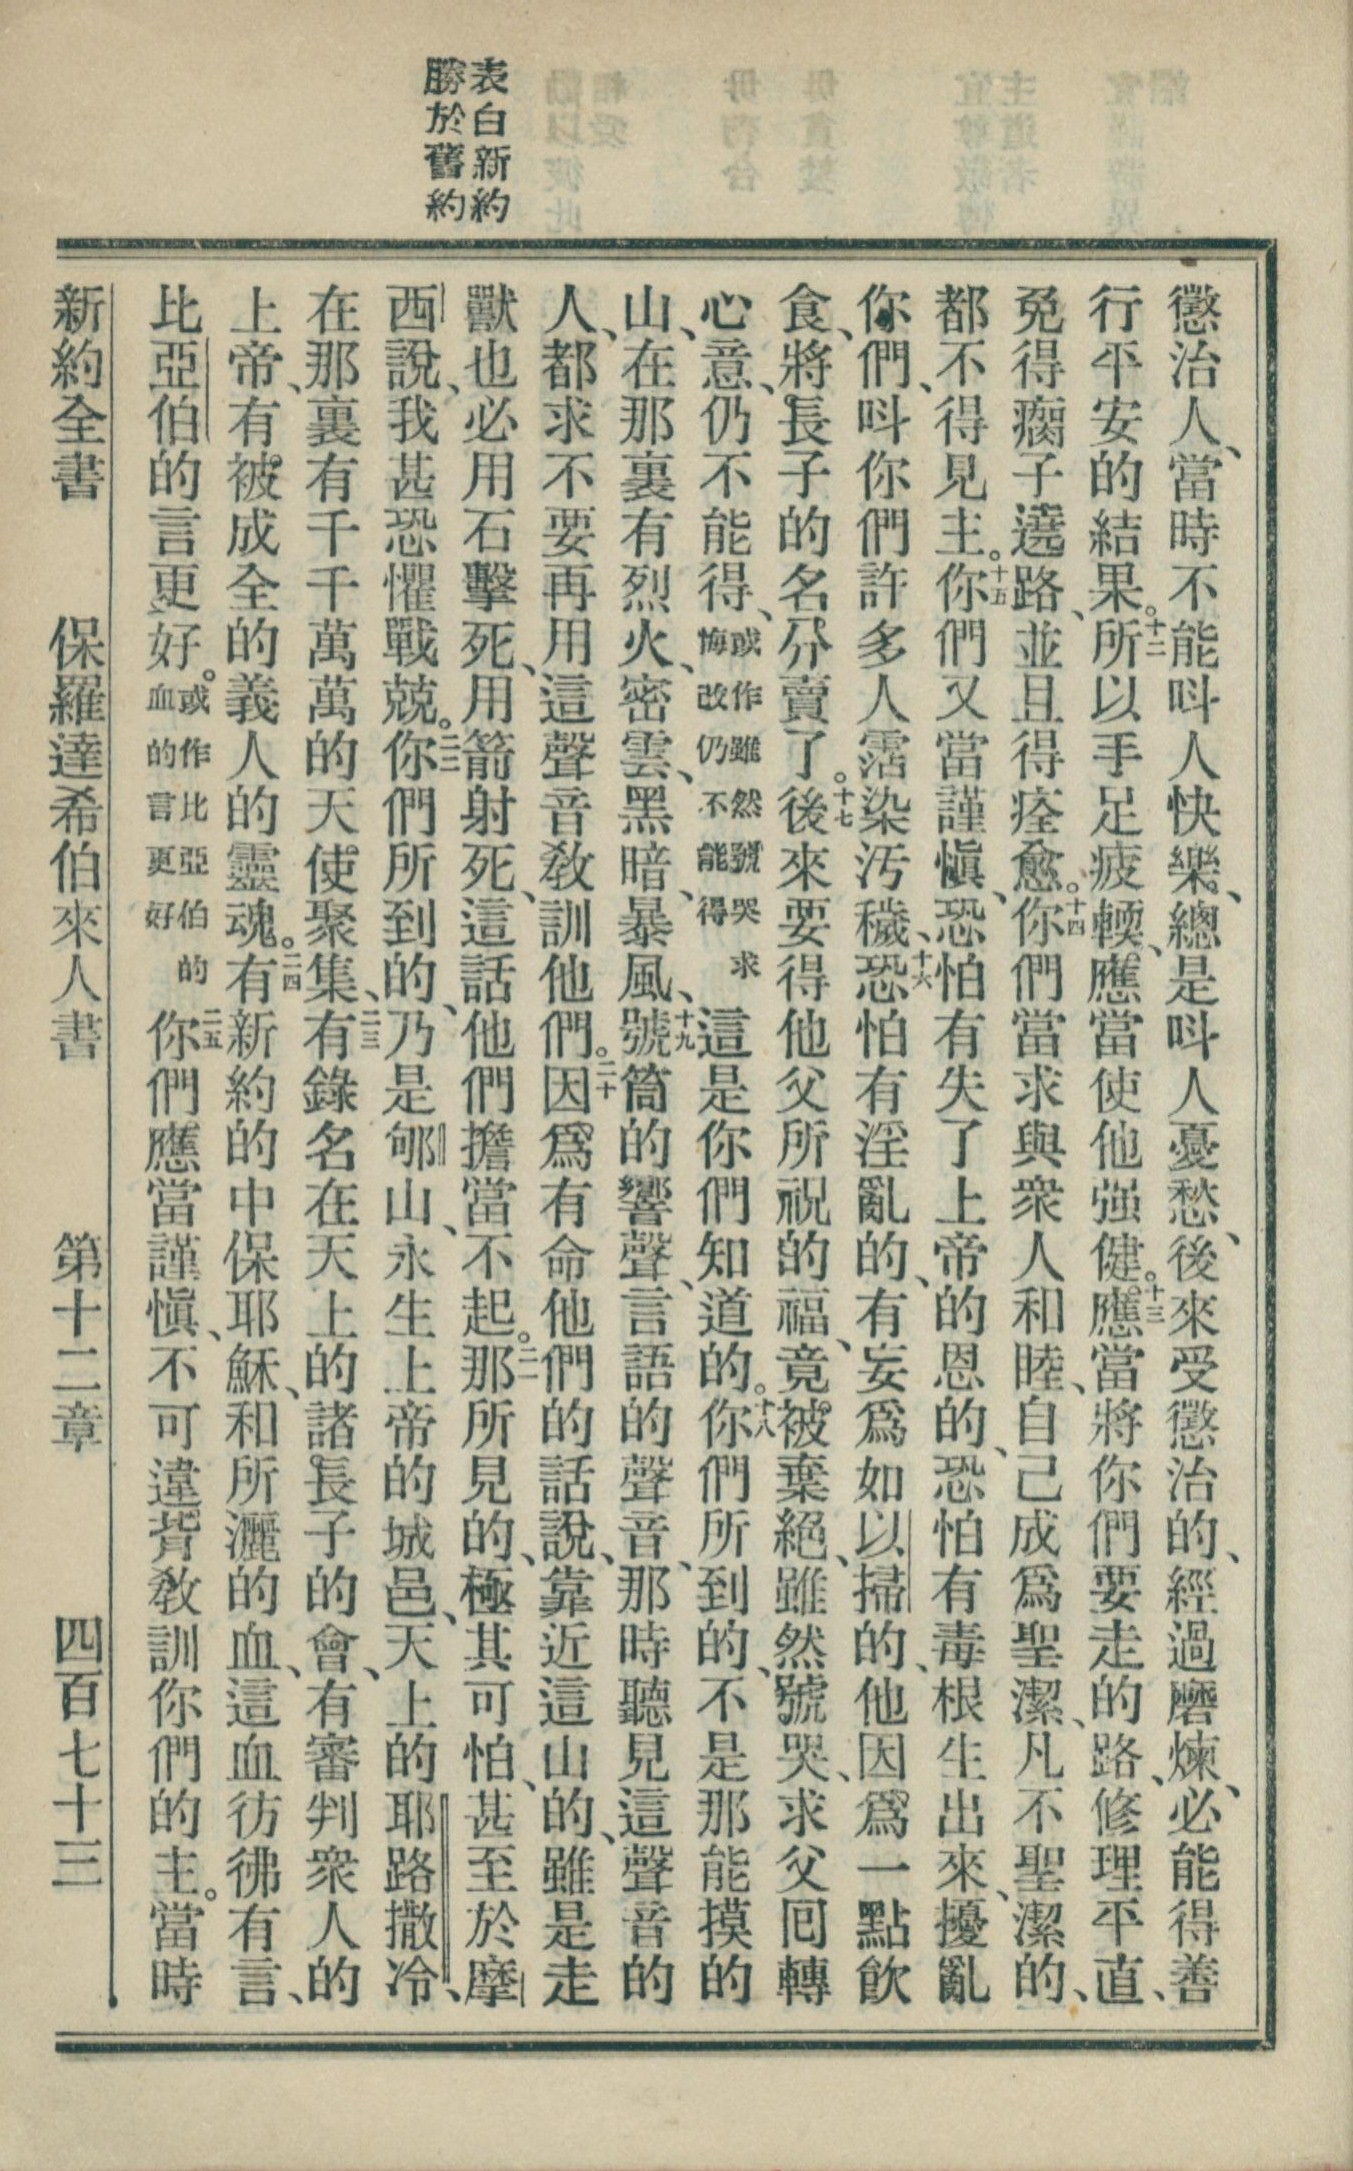 表白新約
勝於舊約
懲治人、當時不能呌人快樂、總是呌人憂愁、後來受懲治的、經過磨煉、必能得善
行平安的結果。十二所以手足疲輭、應當使他强健。十三應當將你們要走的路、修理平直、
免得瘸子遶路、並且得痊愈。十四你們當求與衆人和睦、自己成爲聖潔、凡不聖潔的、
都不得見主。十五你們又當謹愼、恐怕有失了上帝的恩的、恐怕有毒根生出來、擾亂
你們、呌你們許多人霑染汚穢、十六恐怕有淫亂的、有妄爲如以掃的、他因爲一點飮
食、將長子的名分賣了。十七後來要得他父所祝的福、竟被棄絕、雖然號哭、求父囘轉
心意、仍不能得、或作雖然號哭求悔改仍不能得這是你們知道的。十八你們所到的、不是那能摸的
山、在那裏有烈火、密雲、黑暗、暴風、十九號筒的響聲、言語的聲音、那時聽見這聲音的
人、都求不要再用這聲音敎訓他們。二十因爲有命他們的話說、靠近這山的、雖是走
獸也必用石擊死、用箭射死、這話他們擔當不起。二一那所見的、極其可怕、甚至於摩
西說、我甚恐懼戰兢。二二你們所到的、乃是郇山、永生上帝的城邑、天上的耶路撒冷、
在那裏有千千萬萬的天使聚集、二三有錄名在天上的諸長子的會、有審判衆人的
上帝、有被成全的義人的靈魂。二四有新約的中保耶穌、和所灑的血、這血彷彿有言、
比亞伯的言更好。或作比亞伯的血的言更好二五你們應當謹愼、不可違背敎訓你們的主。當時
新約全書 保羅達希伯來人書 第十二章 四百七十三